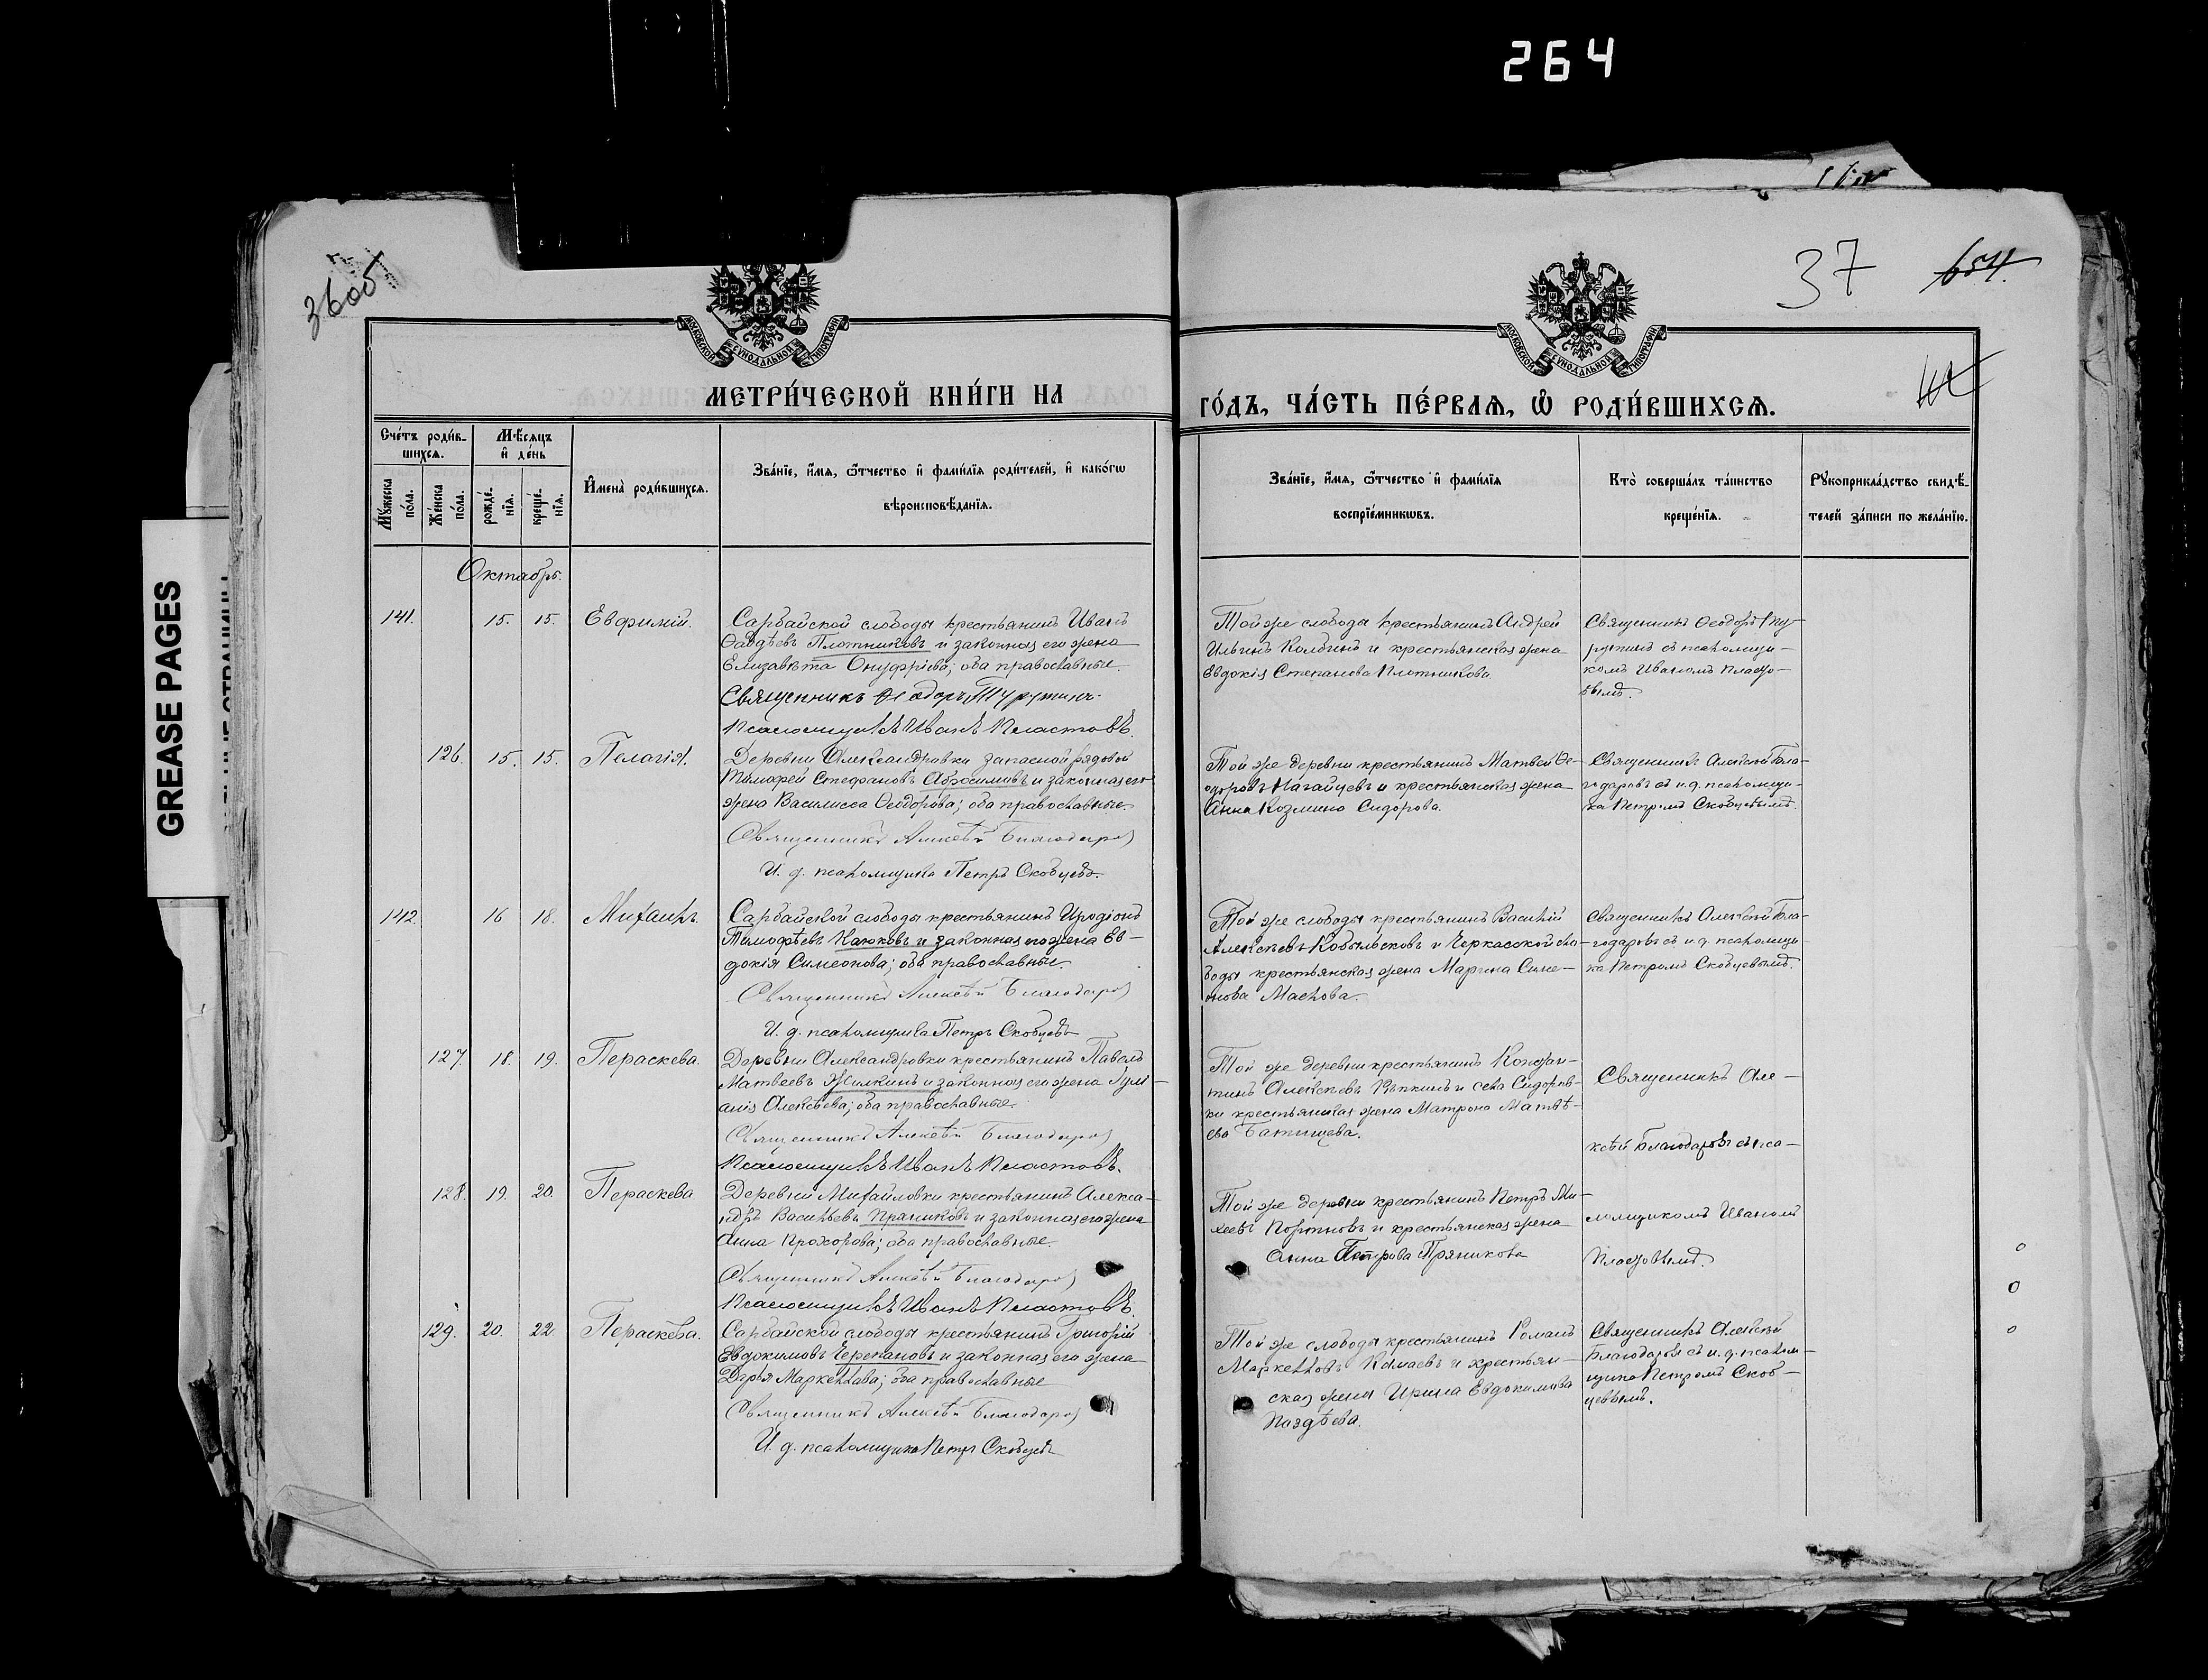 264
GREASE PAGES
3605
37
654.
МОСКОВСКОЙ СУНОДАЛЬНОЙ ТИПОГРАФІИ
МОСКОВСКОЙ СУНОДАЛЬНОЙ ТИПОГРАФІИ
МЕТРИ́ЧЕСКОЙ КНИ́ГИ НА
ГО́ДЪ, ЧА́СТЬ ПЕ́РВАѦ, Ѡ҆ РОДИ́ВШИХСѦ.
Сче́тъ роди́в-
шихсѧ.
Мꙋ́жеска по́ла.
Же́нска по́ла.
Мѣ́сѧцъ
и҆ де́нь
рожде́-
нїѧ.
креще́-
нїѧ.
И҆мена̀ роди́вшихсѧ.
Зва́нїе, и҆́мѧ, ѻ҆́тчество и҆ фами́лїѧ роди́телей, и҆ како́гѡ
вѣроисповѣ́данїѧ.
Зва́нїе, и҆́мѧ, ѻ҆́тчество и҆ фами́лїѧ
воспрїе́мникѡвъ.
Кто̀ соверша́лъ та́инство
креще́нїѧ.
Рꙋкоприкла́дство свидѣ́-
телей за́писи по жела́нїю.
Октябрь.
141. 15. 15. Евфимій.
Сарбайской слободы крестьянинъ Иванъ
Ѳаддѣевъ Плотниковъ и законная его жена
Елизавѣта Онуфріева; оба православные.
Священникъ Ѳеодоръ
Псаломщикъ Иванъ Пластовъ.
Той же слободы крестьянинъ Андрей
Ильинъ Колдинъ и крестьянская жена
Евдокія Степанова Плотникова
Священникъ Ѳеодоръ
съ псаломщи-
комъ Иваномъ Пласто-
вымъ.
126. 15. 15. Пелагія.
Деревни Александровки запасной рядовой
Тимофей Стефановъ Абросимовъ и законная его
жена Василисса Ѳеодорова; оба православные.
Священникъ Алексѣй Благодаровъ
И. д. псаломщика Петръ Скобцевъ.
Той же деревни крестьянинъ Матвей Ѳе-
одоровъ Нагайцевъ и крестьянская жена
Анна Козмина Сидорова.
Священникъ Алексѣй Бла-
годаровъ съ и. д. псаломщи-
ка Петромъ Скобцевымъ.
142. 16 18. Михаилъ.
Сарбайской слободы крестьянинъ Иродіонъ
Тимофѣевъ Каюковъ и законная его жена Ев-
докія Симеонова; оба православные.
Священникъ Алексѣй Благодаровъ
И. д. псаломщика Петръ Скобцевъ
Той же слободы крестьянинъ Василій
Алексѣевъ Кобыльсковъ и Черкасской сло-
боды крестьянская жена Марина Симе-
онова Маслова.
Священникъ Алексѣй Бла-
годаровъ съ и. д. псаломщи-
ка Петромъ Скобцевымъ.
127. 18. 19. Пераскева.
Деревни Александровки крестьянинъ Павелъ
Матвеевъ Жилкинъ и законная его жена Іулі-
анія Алексѣева; оба православные.
Священникъ Алексѣй Благодаровъ
Псаломщикъ Иванъ Пластовъ.
Той же деревни крестьянинъ Констан-
тинъ Алексѣевъ и села Сидоров-
ки крестьянская жена Матрона Матвѣ-
ева Батищева.
Священникъ Але-
ксѣй Благодаровъ съ пса-
128. 19. 20. Пераскева
Деревни Михайловки крестьянинъ Алекса-
ндръ Васильевъ Пряниковъ и законная его жена
Анна Прохорова; оба православные.
Священникъ Алексѣй Благодаровъ
Псаломщикъ Иванъ Пластовъ.
Той же деревни крестьянинъ Петръ Ми-
хеевъ Портновъ и крестьянская жена
Анна Петрова Пряникова
ломщикомъ Иваномъ
Пластовымъ.
129. 20. 22. Пераскева.
Сарбайской слободы крестьянинъ Григорій
Евдокимовъ Черепановъ и законная его жена
Дарья Маркеллова; оба православные
Священникъ Алексѣй Благодаровъ
И. д. псаломщика Петръ Скобцевъ
Той же слободы крестьянинъ Романъ
Маркелловъ Камаевъ и крестьян-
ская жена Ирина Евдокимова
Поздѣева.
Священникъ Алексѣй
Благодаровъ съ и. д. псалом-
щика Петромъ Скоб-
цевымъ.